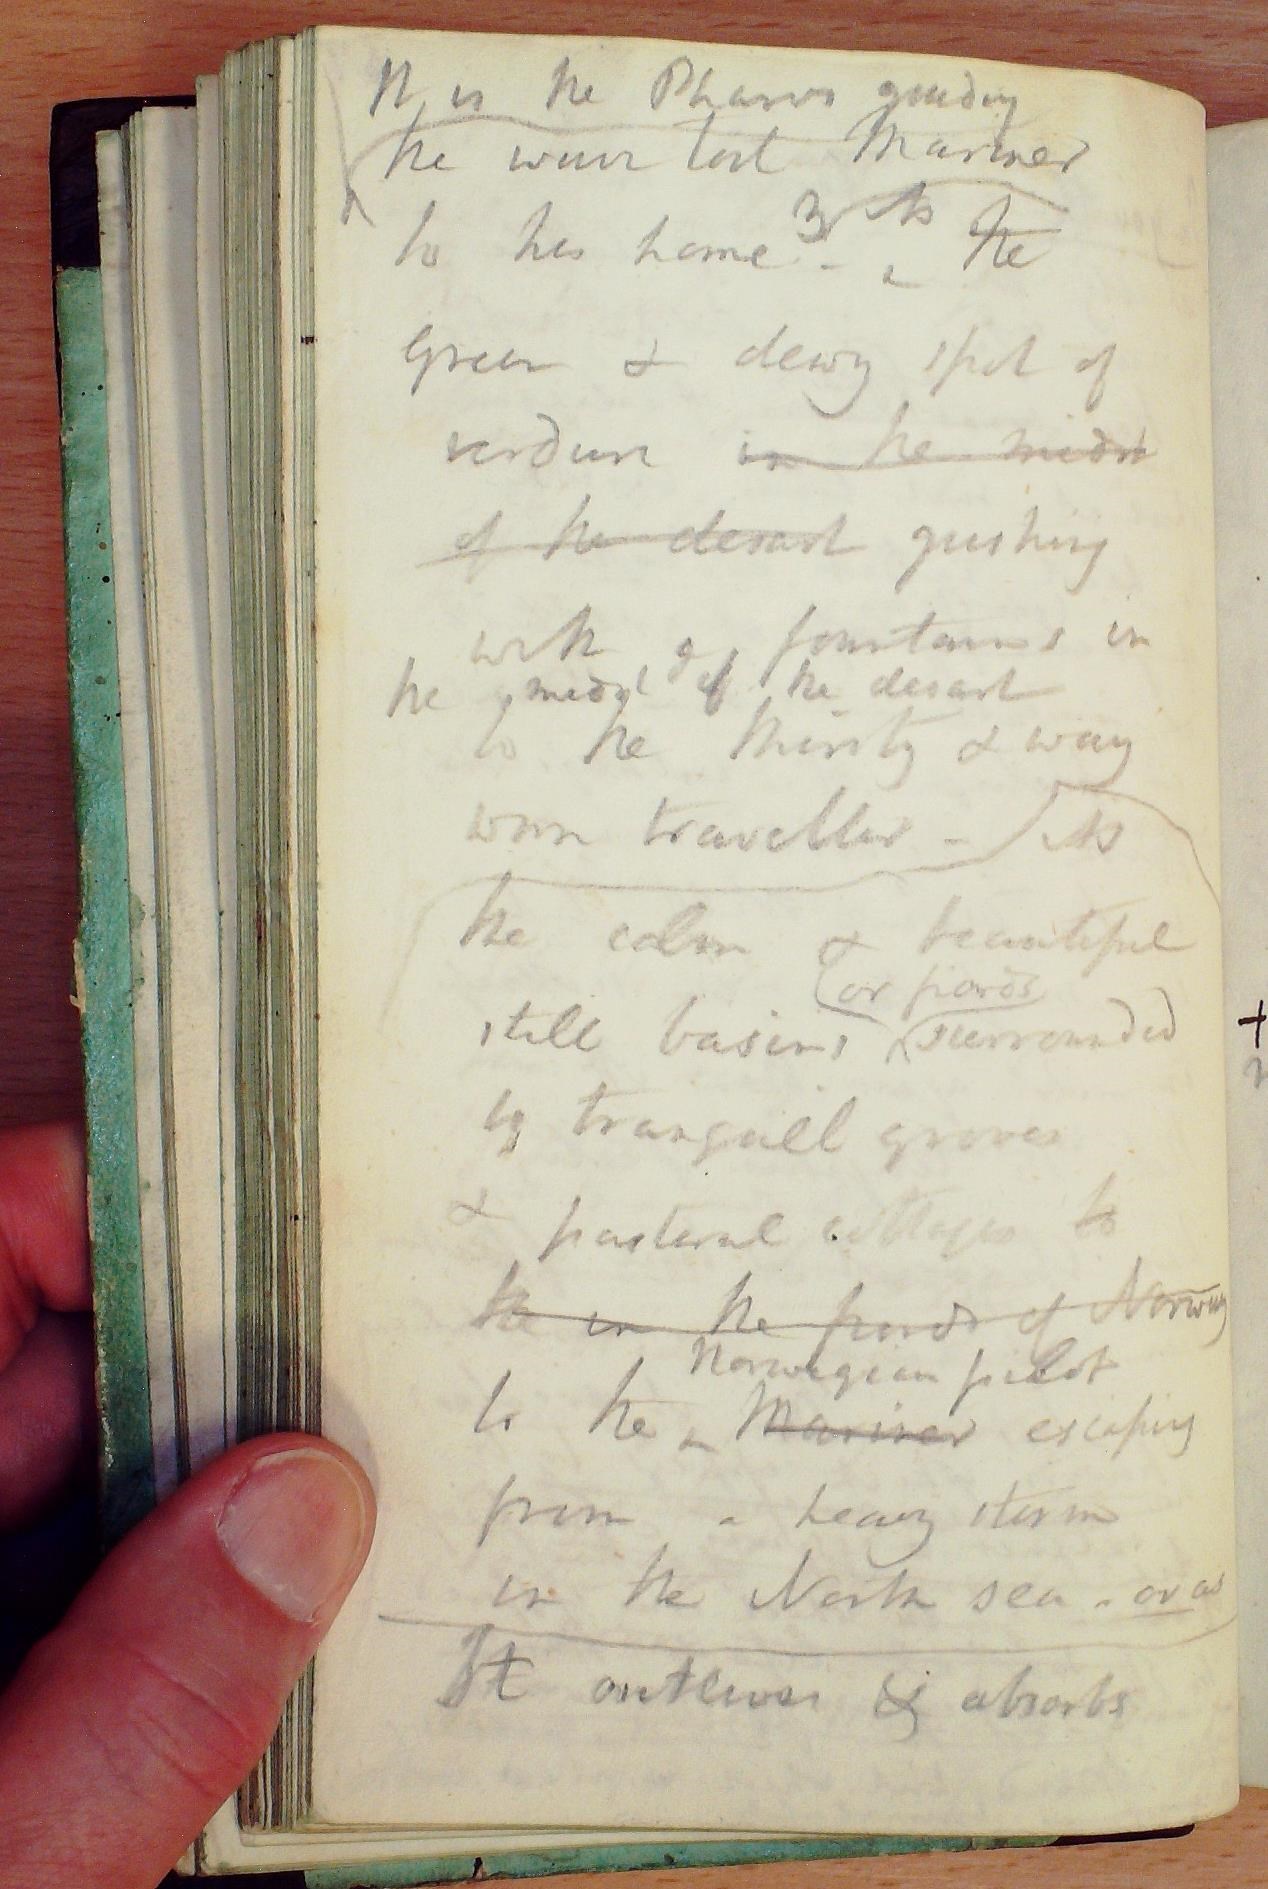 It is the Pharos guiding
the wave lost Mariner
to his home - 3 As the
green & dewy spot of
verdure in the midst
of the desart gushing
with fountains in
the midst of the desart
to the thirsty & way
worn traveller - As
the calm & beautiful
(or fiords)
still basins (surrounded
by tranquill groves
& pastoral cottages to
the in the fiords of Norway
Norwegian pilot
to the Mariner escaping
from a heavy storm
in the North sea - or as
It outlives & absorbs